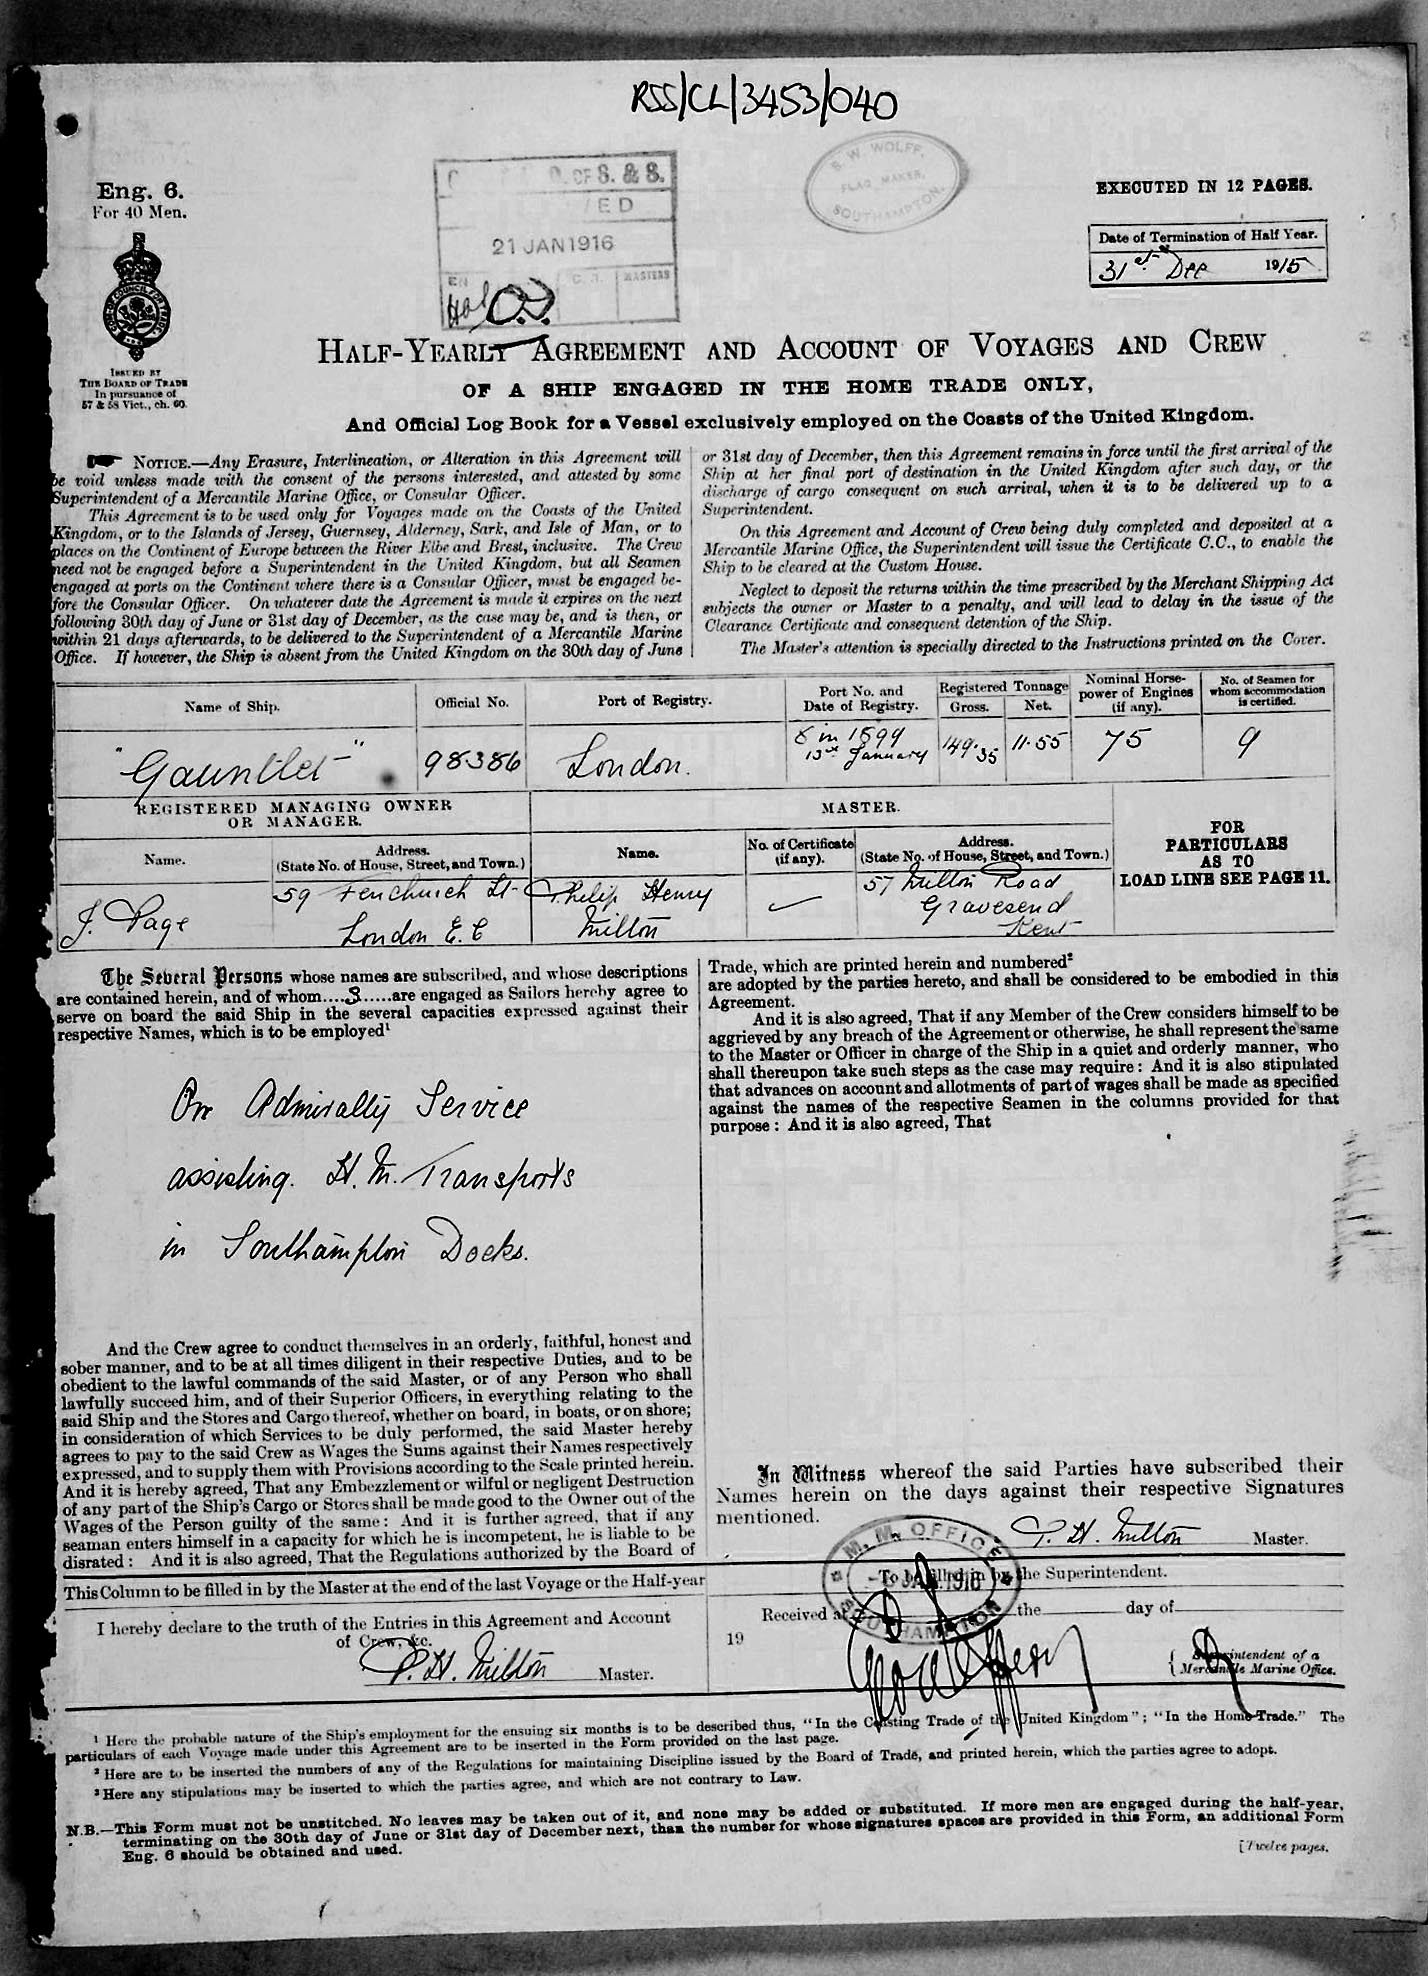 RSS/CL/3453/040
Eng. 6.
For 40 Men.
ISSUED BY
THE BOARD OF TRADE
In pursuance of
57 & 58 Vict., ch. 60.
OF S. & S.
ED
21 JAN 1916
MASTERS
S. W. WOLFF,
FLAG MAKER,
SOUTHAMPTON.
EXECUTED IN 12 PAGES.
Date of Termination of Half Year.
31st Dec 1915
HALF-YEARLY AGREEMENT AND ACCOUNT OF VOYAGES AND CREW
OF A SHIP ENGAGED IN THE HOME TRADE ONLY,
And Official Log Book for a Vessel exclusively employed on the Coasts of the United Kingdom.
NOTICE.—Any Erasure, Interlineation, or Alteration in this Agreement will
be void unless made with the consent of the persons interested, and attested by some
Superintendent of a Mercantile Marine Office, or Consular Officer.
This Agreement is to be used only for Voyages made on the Coasts of the United
Kingdom, or to the Islands of Jersey, Guernsey, Alderney, Sark, and Isle of Man, or to
places on the Continent of Europe between the River Elbe and Brest, inclusive. The Crew
need not be engaged before a Superintendent in the United Kingdom, but all Seamen
engaged at ports on the Continent where there is a Consular Officer, must be engaged be-
fore the Consular Officer. On whatever date the Agreement is made it expires on the next
following 30th day of June or 31st day of December, as the case may be, and is then, or
within 21 days afterwards, to be delivered to the Superintendent of a Mercantile Marine
Office. If however, the Ship is absent from the United Kingdom on the 30th day of June
or 31st day of December, then this Agreement remains in force until the first arrival of the
Ship at her final port of destination in the United Kingdom after such day, or the
discharge of cargo consequent on such arrival, when it is to be delivered up to a
Superintendent.
On this Agreement and Account of Crew being duly completed and deposited at a
Mercantile Marine Office, the Superintendent will issue the Certificate C.C., to enable the
Ship to be cleared at the Custom House.
Neglect to deposit the returns within the time prescribed by the Merchant Shipping Act
subjects the owner or Master to a penalty, and will lead to delay in the issue of the
Clearance Certificate and consequent detention of the Ship.
The Master's attention is specially directed to the Instructions printed on the Cover.
Name of Ship. Official No. Port of Registry. Port No. and Date of Registry. Registered Tonnage Gross. Net. Nominal Horse-power of Engines (if any). No. of Seamen for whom accommodation is certified.
"Gauntlet" 98386 London. 8 in 1899 13th January 149.35 11.55 75 9
REGISTERED MANAGING OWNER
OR MANAGER.
MASTER.
Name. Address. (State No. of House, Street, and Town.) Name. No. of Certificate (if any). Address. (State No. of House, Street, and Town.)
FOR
PARTICULARS
AS TO
LOAD LINE SEE PAGE 11.
J. Page
59 Fenchurch St
London E.C
Philip Henry
Milton
57 Milton Road
Gravesend
Kent
The Several Persons whose names are subscribed, and whose descriptions
are contained herein, and of whom....3......are engaged as Sailors hereby agree to
serve on board the said Ship in the several capacities expressed against their
respective Names, which is to be employed¹
On Admiralty Service
assisting. H. M. Transports
in Southampton Docks.
And the Crew agree to conduct themselves in an orderly, faithful, honest and
sober manner, and to be at all times diligent in their respective Duties, and to be
obedient to the lawful commands of the said Master, or of any Person who shall
lawfully succeed him, and of their Superior Officers, in everything relating to the
said Ship and the Stores and Cargo thereof, whether on board, in boats, or on shore;
in consideration of which Services to be duly performed, the said Master hereby
agrees to pay to the said Crew as Wages the Sums against their Names respectively
expressed, and to supply them with Provisions according to the Scale printed herein.
And it is hereby agreed, That any Embezzlement or wilful or negligent Destruction
of any part of the Ship's Cargo or Stores shall be made good to the Owner out of the
Wages of the Person guilty of the same: And it is further agreed, that if any
seaman enters himself in a capacity for which he is incompetent, he is liable to be
disrated: And it is also agreed, That the Regulations authorized by the Board of
Trade, which are printed herein and numbered²
are adopted by the parties hereto, and shall be considered to be embodied in this
Agreement.
And it is also agreed, That if any Member of the Crew considers himself to be
aggrieved by any breach of the Agreement or otherwise, he shall represent the same
to the Master or Officer in charge of the Ship in a quiet and orderly manner, who
shall thereupon take such steps as the case may require: And it is also stipulated
that advances on account and allotments of part of wages shall be made as specified
against the names of the respective Seamen in the columns provided for that
purpose: And it is also agreed, That
In Witness whereof the said Parties have subscribed their
Names herein on the days against their respective Signatures
mentioned.
P. H. Milton Master.
This Column to be filled in by the Master at the end of the last Voyage or the Half-year
I hereby declare to the truth of the Entries in this Agreement and Account
of Crew, &c.
P. H. Milton Master.
To be filled in by the Superintendent.
M. M. OFFICE
JAN. 1916
SOUTHAMPTON
Received at the day of
19
Superintendent of a
Mercantile Marine Office.
¹ Here the probable nature of the Ship's employment for the ensuing six months is to be described thus, "In the Coasting Trade of the United Kingdom"; "In the Home Trade." The
particulars of each Voyage made under this Agreement are to be inserted in the Form provided on the last page.
² Here are to be inserted the numbers of any of the Regulations for maintaining Discipline issued by the Board of Trade, and printed herein, which the parties agree to adopt.
³ Here any stipulations may be inserted to which the parties agree, and which are not contrary to Law.
N.B.—This Form must not be unstitched. No leaves may be taken out of it, and none may be added or substituted. If more men are engaged during the half-year,
terminating on the 30th day of June or 31st day of December next, than the number for whose signatures spaces are provided in this Form, an additional Form
Eng. 6 should be obtained and used.
[Twelve pages.